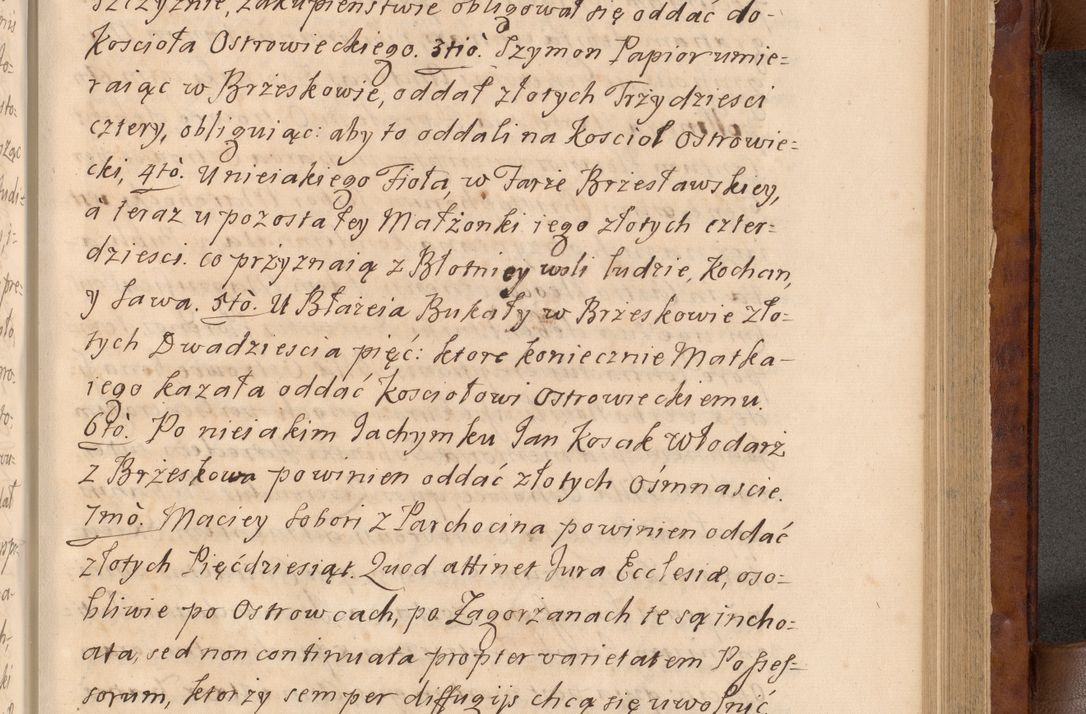 szczyznie, zakupienstwie obligował się oddać do-
Kościoła Ostrowieckiego. 3tiò. Szymon Papior umie=
raiąc w Brzeskowie, oddał złotych Trzydziesci
cztery, obliguiąc: aby to oddali na Kosciol Ostrowie=
cki, 4tò. U nieiakiego Fioła, w Farze Brzesławskiey,
a teraz u pozostałey Małżonki iego złotych czter=
dziesci. co przyznaią z Błotniey wsli ludzie, Kochan,
y Sawa. 5tò. U Błazeia Bukały w Brzeskowie zło=
tych Dwadziescia pięć: ktore koniecznie Matka-
iego kazała oddać Kosciołowi Ostrowieckiemu.
6tò. Po nieiakim Jachymku Jan Kosak Włodarz
z Brzeskowa powinien oddać złotych ośmnascie.
7mò. Maciey Sobon z Parchocina powinien oddać
złotych Pięćdziesiąt. Quod attinet Jura Ecclesiæ, oso=
bliwie po Ostrowcach, po Zagorzanach te są incho=
ata, sed non continuata propter varietatem Posses=
sorum, ktorzy semper diffugijs chcą się uwolnić